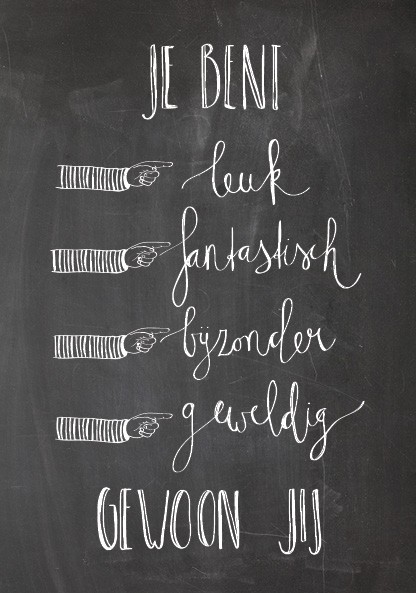 JE BENT
leuk
fantastisch
bijzonder
geweldig
GEWOON JIJ